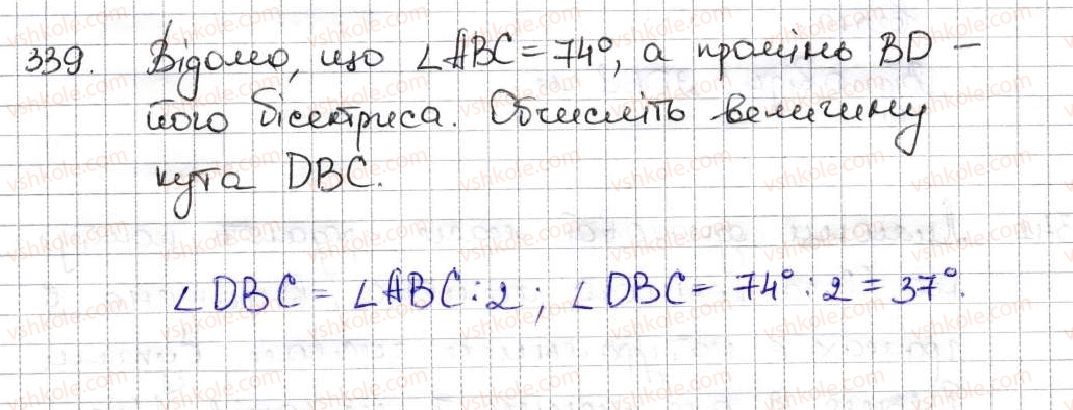 339. Відомо, що ∠ABC = 74°, а промінь BD –
його бісектриса. Обчисліть величину
кута DBC.
∠DBC = ∠ABC : 2 ; ∠DBC = 74° : 2 = 37°.